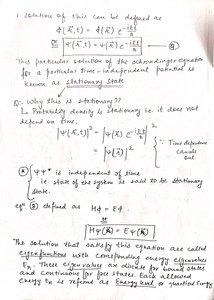 1 solution of this can be defined as
ϕ(x⃗,t) = ϕ(x⃗) e^{-iEt/ħ}
or Ψ(x⃗,t) = Ψ(x⃗) e^{-iEt/ħ} — ②
This particular solution of the schrodinger equation
for a particular time-independent potential is
known as stationary state
Q:- Why this is stationary??
↳ Probability density is stationary i.e. it does not
depend on time,
|Ψ(x⃗,t)|² = |Ψ(x⃗) e^{-iEt/ħ}|²
= |Ψ(x⃗)|²
∵ Time dependence
cancels
out
ΨΨ* is independent of time
i.e. state of the system is said to be stationary
state.
eqⁿ defined as Hϕ = Eϕ
or
HΨ(x⃗) = EΨ(x⃗)
The solution that satisfy this equation are called
eigenfunctions with corresponding energy eigenvalues
Eₙ. These eigenvalues are discrete for bound states
and continuous for free states. Each allowed
energy Eₙ is referred as Energy level or quantised Energy